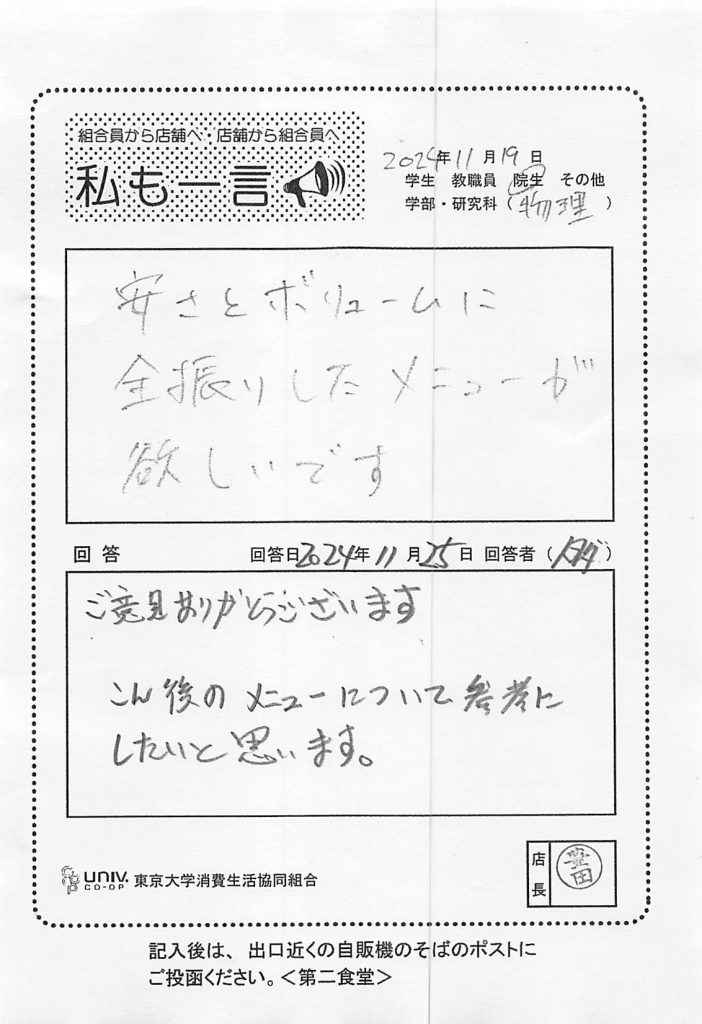 組合員から店舗へ・店舗から組合員へ
私も一言
2024年11月19日
学生 教職員 院生 その他
学部・研究科(物理)
安さとボリュームに
全振りしたメニューが
欲しいです
回答 回答日2024年11月25日 回答者(タダ)
ご意見ありがとうございます
こん後のメニューについて参考に
したいと思います。
UNIV.
CO-OP
東京大学消費生活協同組合
店長
豊田
記入後は、出口近くの自販機のそばのポストに
ご投函ください。<第二食堂>